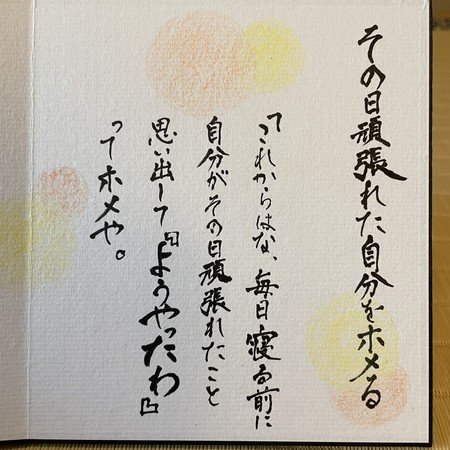 その日頑張れた自分をホメる
「これからはな、毎日寝る前に
自分がその日頑張れたこと
思い出して『ようやったわ』
ってホメや。